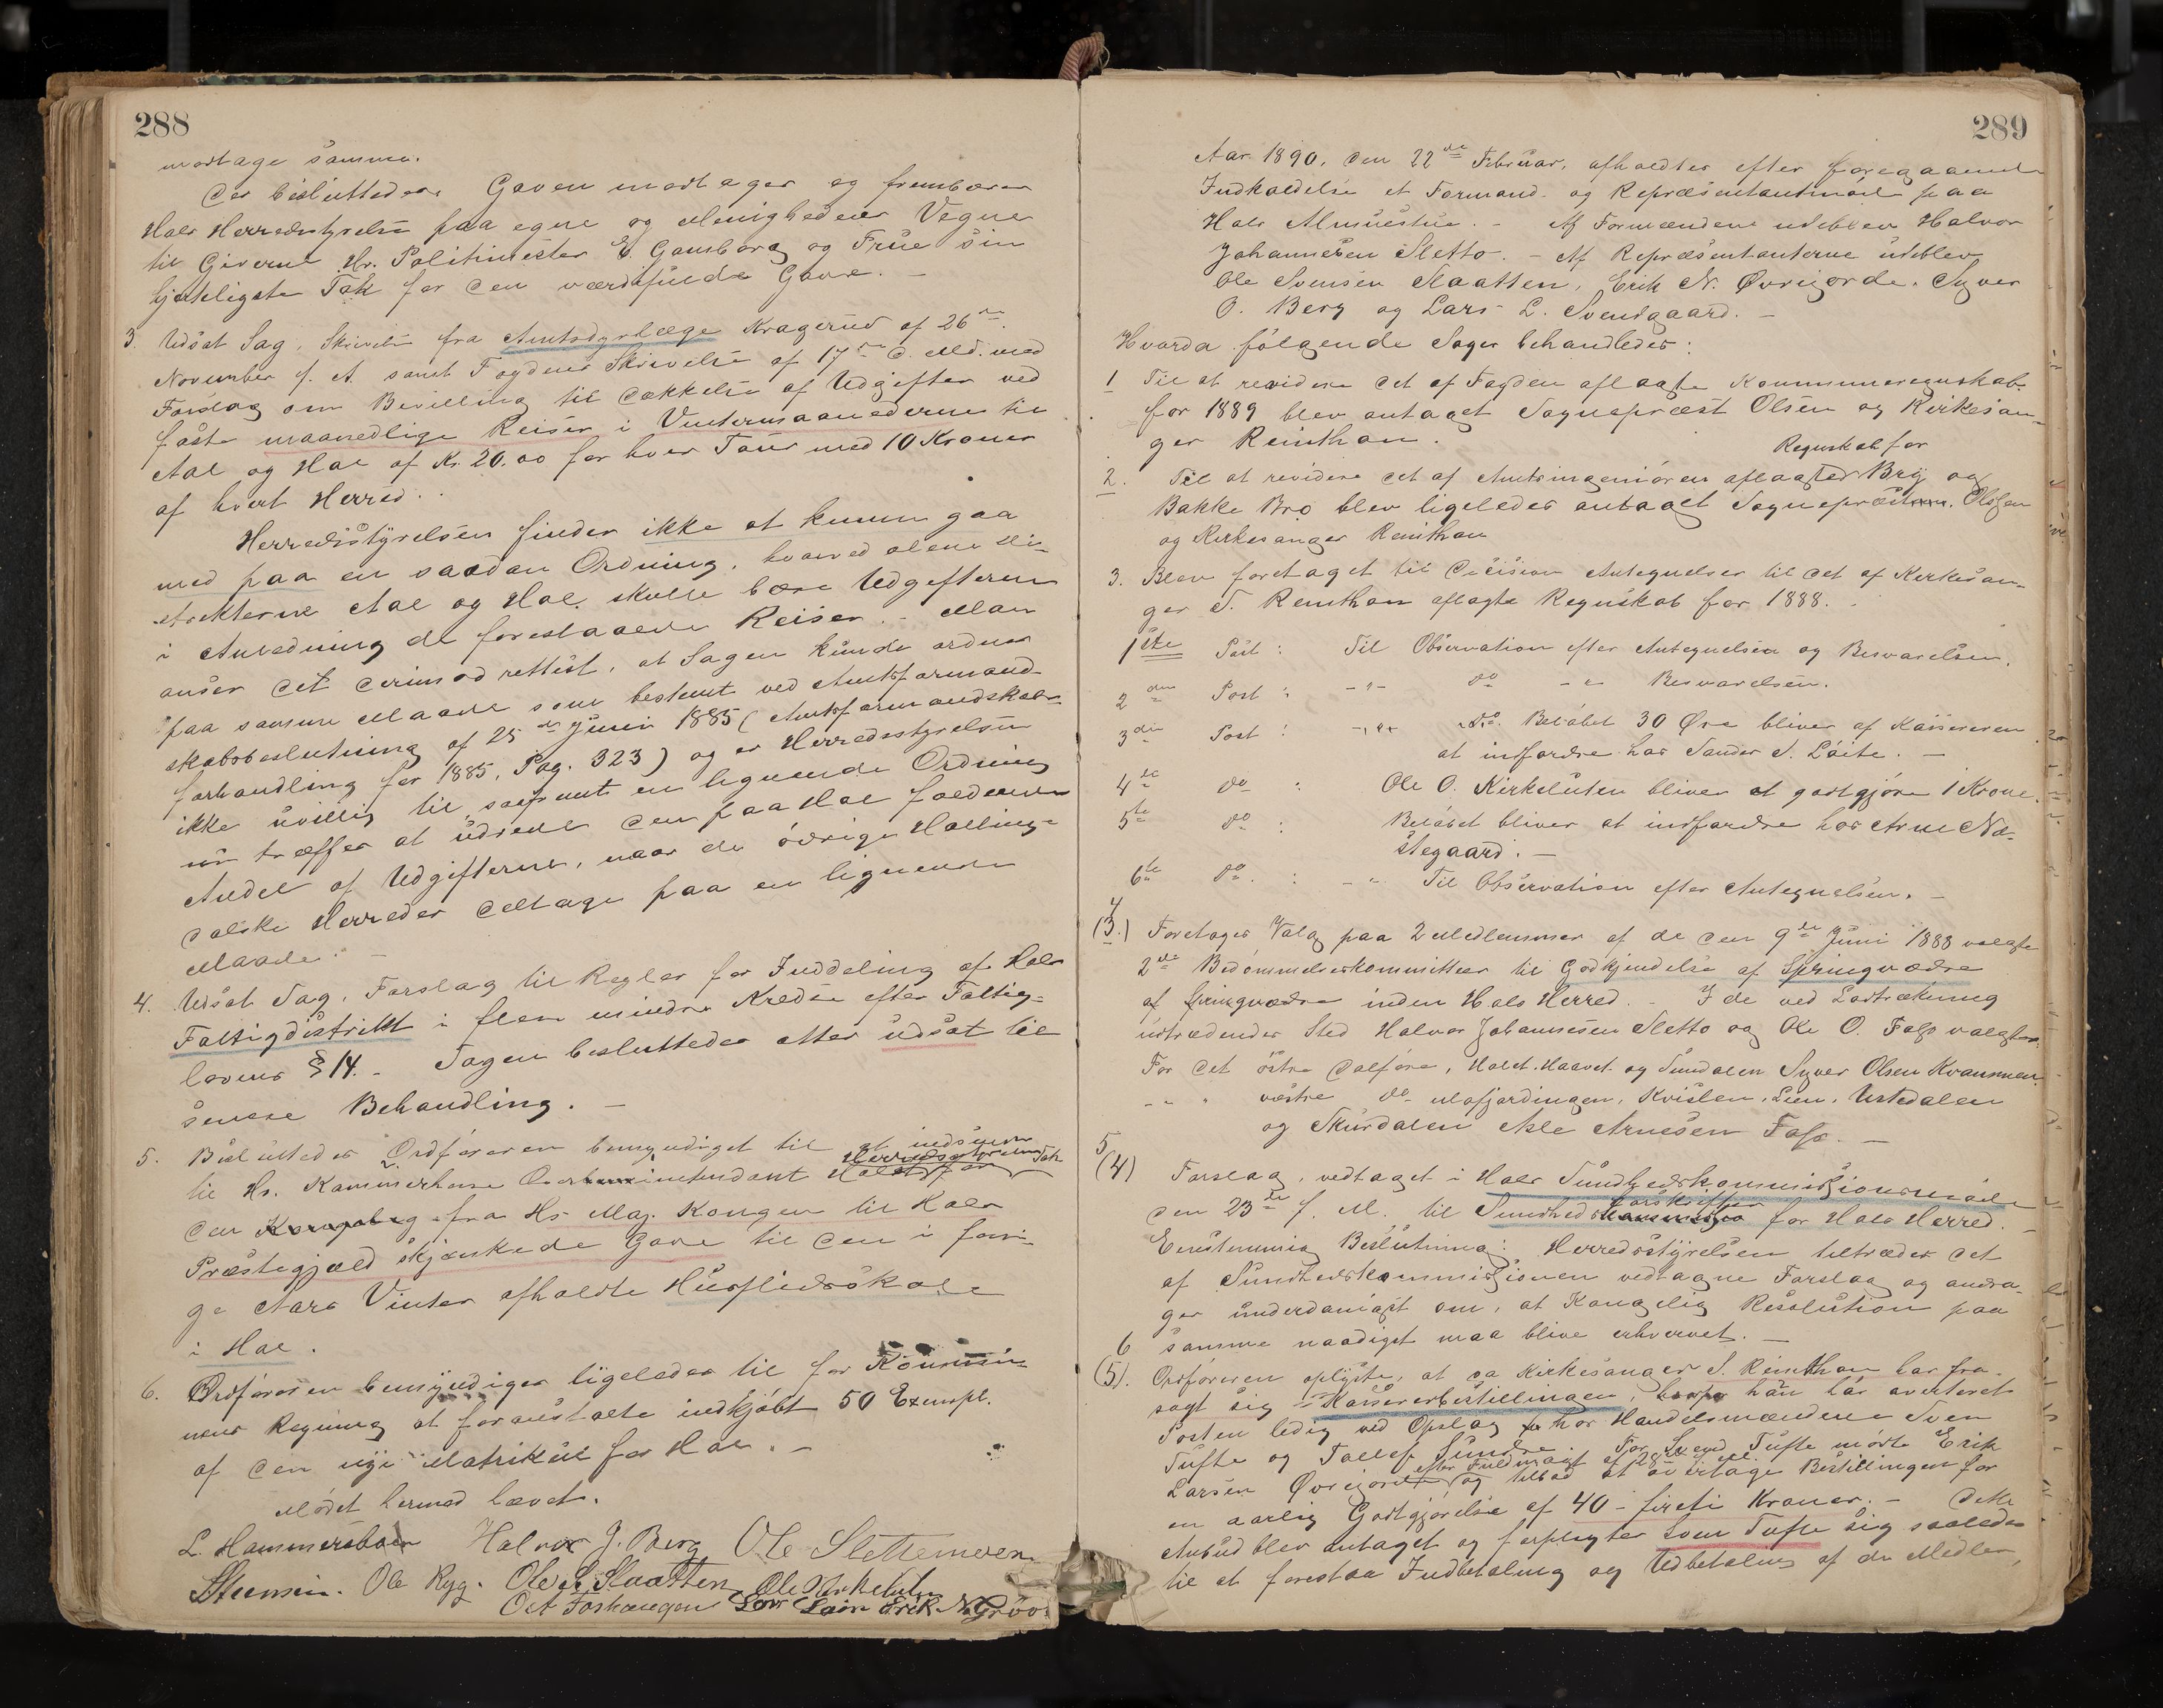 288
modtage samme.
Der besluttedes. Gaven modtages og frembærer
Hols Herredsstyrelse paa egne og Menighedens Vegne
til Giverne Hr. Politimester E. Gamborg og Frue sin
hjerteligste Tak for den værdifulde Gave. –
3. Udsat Sag. Skrivelse fra Amtsdyrlæge Kragerud af 26de
November f. A. samt Fogdens Skrivelse af 17de d. Md. med
Forslag om Bevilling til Dækkelse af Udgifter ved
faste maanedlige Reiser i Vintermaanederne til
Aal og Hol af Kr. 20.00 for hver Tour med 10 Kroner
af hvert Herred.
Herredsstyrelsen finder ikke at kunne gaa
med paa en saadan Ordning, hvorved alene Di-
strikterne Aal og Hol skulle bære Udgifterne
i Anledning de foreslaaede Reiser. – Man
anser det derimod rettest, at Sagen kunde ordnes
paa samme Maade som bestemt ved Amtsformand-
skabsbeslutning af 25de Juni 1885 (Amtsformandskabs-
forhandling for 1885, Pag. 323) og er Herredsstyrelsen
ikke uvillig til, saafremt en lignende Ordning
nu træffes at udrede den paa Hol faldende
Andel af Udgifterne, naar de øvrige Halling-
dalske Herreder deltage paa en lignende
Maade. –
4. Udsat Sag. Forslag til Regler for Inddeling af Hols
Fattigdistrikt i flere mindre Kredse efter Fattig-
lovens § 14. – Sagen besluttedes atter udsat til
senere Behandling. –
5. Besluttedes Ordføreren bemyndiget til at indsende Herredsstyrelsens Tak
til Hr. Kammerherre Overhofintendant Holst for
den fra Hs. Maj. Kongen til Hols
Præstegjæld skjænkede Gave til den i forri-
ge Aars Vinter afholdte Husflidsskole
i Hol.
6. Ordføreren bemyndiges ligeledes til for Kommu-
nens Regning at foranstalte indkjøbt 50 Exempl.
af den nye Matrikul for Hol. –
Mødet hermed hævet.
L. Hammersbøen Halvor J. Berg Ole Slettemoen
Steensen. Ole Ryg. Ole S. Slaatten Ole Kirkeluten
Lars Erik N.
289
Aar 1890, den 22de Februar, afholdtes efter foregaaende
Indkaldelse et Formand- og Repræsentantmøde paa
Hols Almuestue. – Af Formændene udeblev Halvor
Johannesen Sletto. – Af Repræsentanterne udeblev
Ole Svensen Slaatten, Erik N. Øvrejorde, Syver
O. Berg og Lars L. Svendgaard. –
Hvorda følgende Sager behandledes:
1 Til at revidere det af Fogden aflagte Kommuneregnskab
for 1889 blev antaget Sognepræst Olsen og Kirkesan-
ger Reinthon.
2. Til at revidere det af Amtsingeniøren aflagte Regnskab for Bry og
Bakke Bro blev ligeledes antaget Sognepræst Olsen
og Kirkesanger Reinthon
3. Blev foretaget til Decision Antegnelser til det af Kirkesan-
ger S. Reinthon aflagte Regnskab for 1888. –
1ste Post: Til Observation efter Antegnelsen og Besvarelsen.
2den Post: –"– do –"– Besvarelsen.
3die Post: –"– do. Beløbet 30 Øre bliver af Kassereren
at indfordre hos Sander S. Løite. –
4de do : Ole O. Kirkeluten bliver at godtgjøre 1 Krone.
5te do : Beløbet bliver at indfordre hos Arne Næ-
stegaard. –
6te do. : –"– Til Observation efter Antegnelsen. –
4
(3.) Foretoges Valg paa 2 Medlemmer af de den 9de Juni 1888 valgte
2de Bedømmelseskommitteer til Godkjendelse af Springvædre
af Springvædre inden Hols Herred. – I de ved Lodtrækning
udtrædendes Sted Halvor Johannesen Sletto og Ole O. Foss valgtes
For det østre Dalføre, Holet. Hovet og Sundalen Syver Olsen Kvammen.
–"– vestre do Ustedalen
og Skurdalen Asle Arnesen Foss. –
5
(4) Forslag, vedtaget i Hols Sundhedskommissionsmøde
den 23de f. M. til Sundhedsforskrifter for Hols Herred. –
Enstemmig Beslutning: Herredsstyrelsen tiltræder det
af Sundhedskommissionen vedtagne Forslag og andra-
ger underdanigst om, at Kongelig Resolution paa
samme naadigst maa blive erhvervet. –
6
(5). Ordføreren oplyste, at da Kirkesanger S. Reinthon har fra-
sagt sig Kassererbestillingen, han har averteret
Posten ledig ved Opslag hos Handelsmændene Sven
Tufte og Tollef Sundre. For Svend Tufte mødte Erik
Larsen Øvrejorde efter Fuldmagt af 28de f. M. og tilbød at overtage Bestillingen for
en aarlig Godtgjørelse af 40 – firti Kroner. – Dette
Anbud blev antaget og forpligter Sven Tufte sig saaledes
til at forestaa Indbetaling og Udbetaling af de Midler,